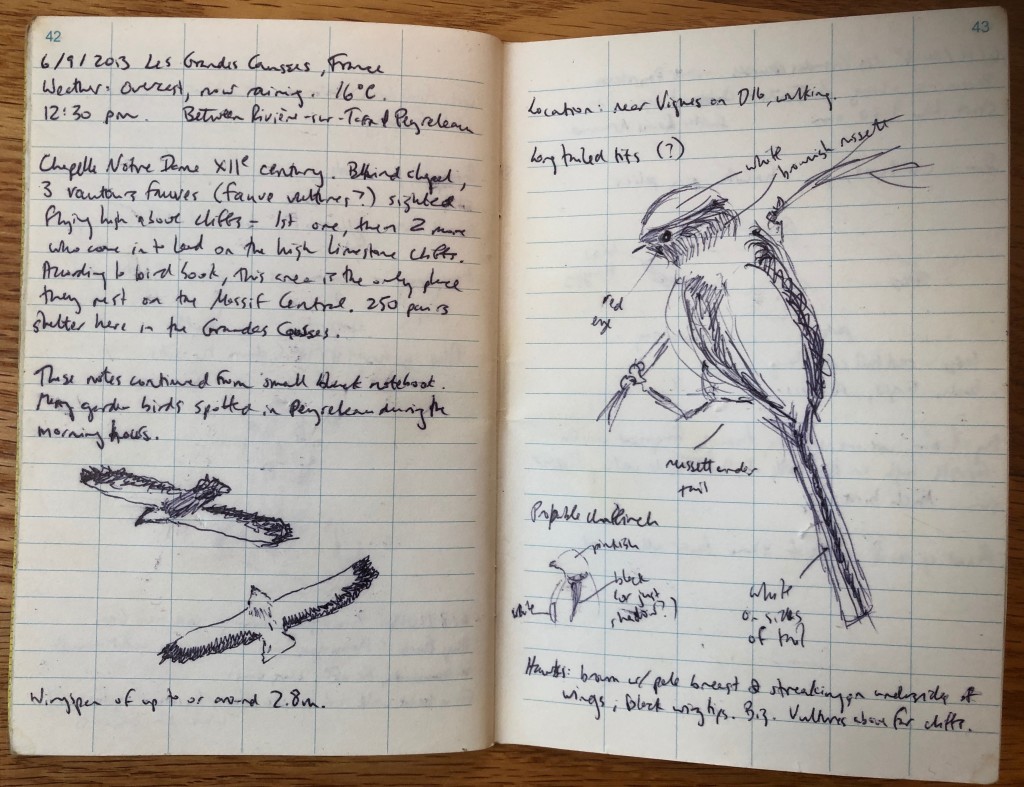 42
6/9/2013 Les Grandes Causses, France
Weather: overcast, now raining. 16°C.
12:30 pm. Between Rivière-sur-Tarn & Peyreleau
Chapelle Notre Dame XIIe century. Behind chapel,
3 vautours fauves (fauve vultures?) sighted
flying high above cliffs – 1st one, then 2 more
who come in to land on the high limestone cliffs.
According to bird book, this area is the only place
they nest on the Massif Central. 250 pairs
shelter here in the Grandes Causses.
These notes continued from small black notebook.
Many garden birds spotted in Peyreleau during the
morning hours.
Wingspan of up to or around 2.8m.
43
Location: near Vignes on D16, walking.
Long tailed tits (?)
white
brownish russett
red
eye
russett under
tail
Probable chaffinch
pinkish
black
(or just
shadow?)
white
white
on sides
of tail
Hawks: brown w/ pale breast & streaking on underside of
wings, black wing tips. Big. Vultures above far cliffs.